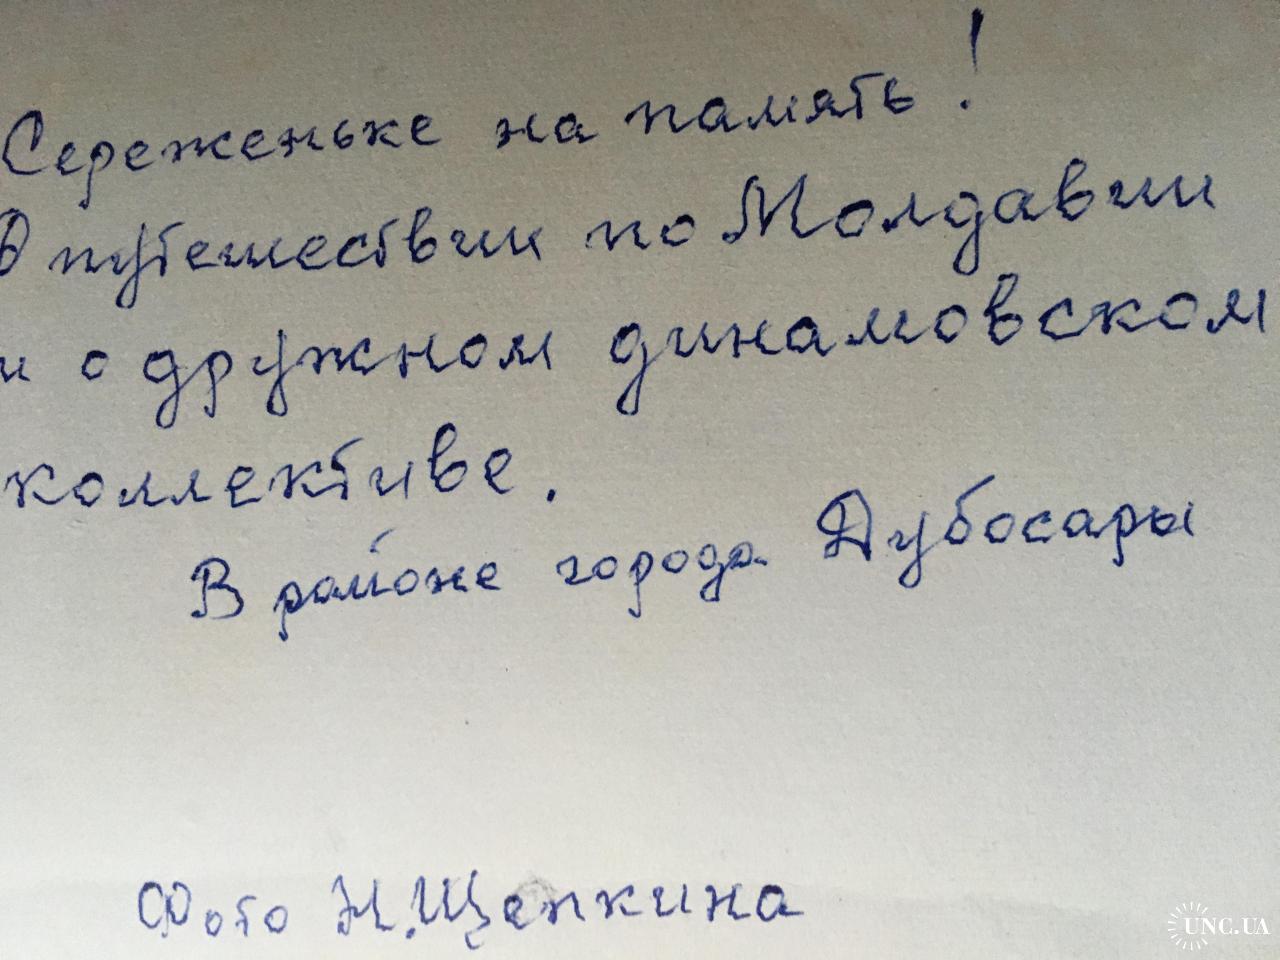 Сереженьке на память!
О путешествии по Молдавии
и о дружном динамовском
коллективе.
В районе города Дубосары
Фото Н.Щепкина
UNC.UA